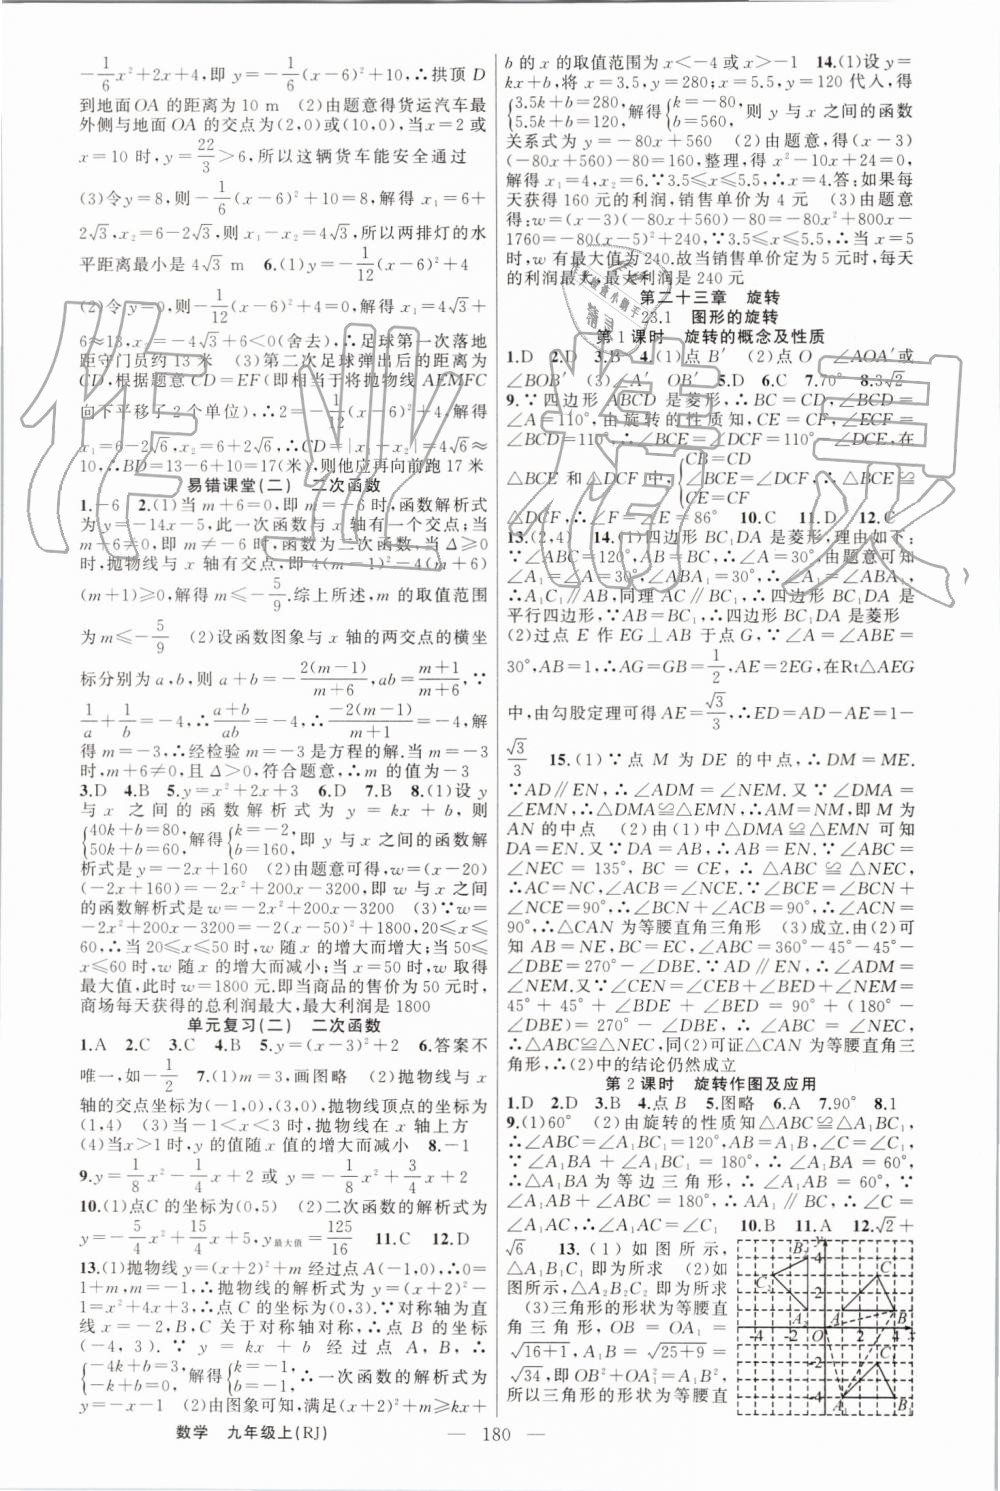 -1/6x²+2x+4,即 y=-1/6(x-6)²+10,∴拱顶 D
到地面OA 的距离为 10 m (2)由题意得货运汽车最
外侧与地面 OA 的交点为(2,0)或(10,0),当x=2 或
x=10 时,y=22/3>6,所以这辆货车能安全通过
(3)令y=8,则-1/6(x-6)²+10=8,解得 x₁=6+
2√3,x₂=6-2√3,则 x₁-x₂=4√3,所以两排灯的水
平距离最小是 4√3 m 6.(1)y=-1/12(x-6)²+4
(2)令 y=0,则-1/12(x-6)²+4=0,解得 x₁=4√3+
6≈13,x₂=-4√3+6<0(舍去),∴足球第一次落地
距守门员约 13 米 (3)第二次足球弹出后的距离为
CD,根据题意 CD=EF(即相当于将抛物线 AEMFC
向下平移了 2 个单位),∴2=-1/12(x-6)²+4,解得
x₁=6-2√6,x₂=6+2√6,∴CD=|x₁-x₂|=4√6≈
10,∴BD=13-6+10=17(米),则他应再向前跑 17 米
易错课堂(二) 二次函数
1.-6 2.(1)当 m+6=0,即 m=-6 时,函数解析式
为 y=-14x-5,此一次函数与 x 轴有一个交点;当
m+6≠0,即 m≠-6 时,函数为二次函数,当Δ≥0
时,抛物线与 x 轴有交点,即 4(m-1)²-4(m+6)
(m+1)≥0,解得 m≤-5/9.综上所述,m 的取值范围
为 m≤-5/9 (2)设函数图象与 x 轴的两交点的横坐
标分别为 a,b,则 a+b=-2(m-1)/m+6,ab=m+1/m+6,∵
1/a+1/b=-4,∴a+b/ab=-4,∴-2(m-1)/m+1=-4,解
得 m=-3,∴经检验 m=-3 是方程的解.当 m=-3
时,m+6≠0,且 Δ>0,符合题意,∴m 的值为-3
3.D 4.B 5.y=x²+2x+3 6.D 7.B 8.(1)设 y
与 x 之间的函数解析式为 y=kx+b,则
{40k+b=80,50k+b=60,解得{k=-2,b=160,即 y 与 x 之间的函数解
析式是 y=-2x+160 (2)由题意可得,w=(x-20)
(-2x+160)=-2x²+200x-3200,即 w 与 x 之间
的函数解析式是 w=-2x²+200x-3200 (3)∵w=
-2x²+200x-3200=-2(x-50)²+1800,20≤x≤
60,∴当20≤x≤50时,w 随 x 的增大而增大;当 50≤
x≤60时,w 随 x 的增大而减小;当 x=50 时,w 取得
最大值,此时 w=1800 元.即当商品的售价为 50 元时,
商场每天获得的总利润最大,最大利润是 1800
单元复习(二) 二次函数
1.A 2.C 3.C 4.B 5.y=(x-3)²+2 6.答案不
唯一,如-1/2 7.(1)m=3,画图略 (2)抛物线与 x
轴的交点坐标为(-1,0),(3,0),抛物线顶点的坐标为
(1,4) (3)当-1<x<3时,抛物线在 x 轴上方
(4)当x>1时,y 的值随 x 值的增大而减小 8.-1
9.y=1/8x²-1/4x+2 或 y=-1/8x²+3/4x+2
10.(1)点C 的坐标为(0,5) (2)二次函数的解析式为
y=-5/4x²+15/4x+5,y最大值=125/16 11.C 12.D
13.(1)抛物线y=(x+2)²+m 经过点A(-1,0),∴0=
1+m,∴m=-1,∴抛物线的解析式为 y=(x+2)²-1
=x²+4x+3,∴点 C 的坐标为(0,3).∵对称轴为直
线 x=-2,B,C 关于对称轴对称,∴点 B 的坐标为
(-4,3).∵y=kx+b 经过点 A,B,∴
{-4k+b=3,-k+b=0,解得{k=-1,b=-1,∴一次函数的解析式为 y=
-x-1 (2)由图象可知,满足(x+2)²+m≥kx+
b 的 x 的取值范围为 x<-4 或 x>-1 14.(1)设 y=
kx+b,将 x=3.5,y=280;x=5.5,y=120 代入,得
{3.5k+b=280,5.5k+b=120,解得{k=-80,b=560,则 y 与 x 之间的函数
关系式为 y=-80x+560 (2)由题意,得(x-3)
(-80x+560)-80=160,整理,得 x²-10x+24=0,
解得 x₁=4,x₂=6.∵3.5≤x≤5.5,∴x=4.答:如果每
天获得 160 元的利润,销售单价为 4 元 (3)由题意
得:w=(x-3)(-80x+560)-80=-80x²+800x-
1760=-80(x-5)²+240,∵3.5≤x≤5.5,∴当 x=5
时,w 有最大值为 240.故当销售单价定为 5 元时,每天
的利润最大,最大利润是 240 元
第二十三章 旋转
23.1 图形的旋转
第 1 课时 旋转的概念及性质
1.D 2.D 3.B 4.(1)点 B′ (2)点 O ∠AOA′或
∠BOB′ (3)∠A′ OB′ 5.D 6.C 7.70° 8.3√2
9.∵四边形 ABCD 是菱形,∴BC=CD,∠BCD=
∠A=110°,由旋转的性质知,CE=CF,∠ECF=
∠BCD=110°,∴∠BCE=∠DCF=110°-∠DCE,在
△BCE 和△DCF 中,{CB=CD ∠BCE=∠DCF CE=CF,∴△BCE≌
△DCF,∴∠F=∠E=86° 10.C 11.D 12.C
13.(2,4) 14.(1)四边形 BC₁DA 是菱形,理由如下:
∵∠ABC=120°,AB=BC,∴∠A=30°,由题意可知
∠A₁=∠A=30°,∠ABA₁=30°,∴∠A₁=∠ABA₁,
∴A₁C₁∥AB,同理 AC∥BC₁,∴四边形 BC₁DA 是
平行四边形,∵AB=BC₁,∴四边形 BC₁DA 是菱形
(2)过点 E 作 EG⊥AB 于点 G,∵∠A=∠ABE=
30°,AB=1,∴AG=GB=1/2,AE=2EG,在Rt△AEG
中,由勾股定理可得 AE=√3/3,∴ED=AD-AE=1-
√3/3 15.(1)∵点 M 为 DE 的中点,∴DM=ME.
∵AD∥EN,∴∠ADM=∠NEM.又∵∠DMA=
∠EMN,∴△DMA≌△EMN,∴AM=NM,即 M 为
AN 的中点 (2)由(1)中△DMA≌△EMN 可知
DA=EN.又∵DA=AB,∴AB=EN.∵∠ABC=
∠NEC=135°,BC=CE,∴△ABC≌△NEC,
∴AC=NC,∠ACB=∠NCE.∵∠BCE=∠BCN+
∠NCE=90°,∴∠BCN+∠ACB=90°,∴∠ACN=
90°,∴△CAN 为等腰直角三角形 (3)成立.由(2)可
知 AB=NE,BC=CE,∠ABC=360°-45°-45°-
∠DBE=270°-∠DBE.∵AD∥EN,∴∠ADM=
∠NEM.又∵∠CEN=∠CEB+∠BED+∠NEM=
45°+45°+∠BDE+∠BED=90°+(180°-
∠DBE)=270°-∠DBE,∴∠ABC=∠NEC,
∴△ABC≌△NEC,同(2)可证△CAN 为等腰直角三
角形,∴(2)中的结论仍然成立
第 2 课时 旋转作图及应用
1.D 2.D 3.B 4.点 B 5.图略 6.A 7.90° 8.1
9.(1)60° (2)由旋转的性质知△ABC≌△A₁BC₁,
∴∠ABC=∠A₁BC₁=120°,AB=A₁B,∠C=∠C₁,
∵∠A₁BA+∠A₁BC₁=180°,∴∠A₁BA=60°,
∴△A₁BA 为等边三角形,∴∠A₁AB=60°,
∵∠A₁AB+∠ABC=180°,∴AA₁∥BC,
∴∠A₁AC=∠C,∴∠A₁AC=∠C₁ 10.B 11.A 12.√2+
√6 13.(1)如图所示,
△A₁B₁C₁ 即为所求 (2)如
图所示,△A₂B₂C₂ 即为所求
(3)三角形的形状为等腰直
角三角形,OB=OA₁=
√16+1,A₁B=√25+9=
√34,即 OB²+OA₁²=A₁B²,
所以三角形的形状为等腰直
数学 九年级上(RJ) — 180 —